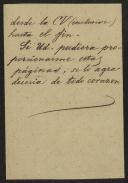 desde la CV (inclusive)
hasta el fin.
Si Ud. pudiera pro-
porcionarme estas
páginas, se lo agra
decería de todo corazón